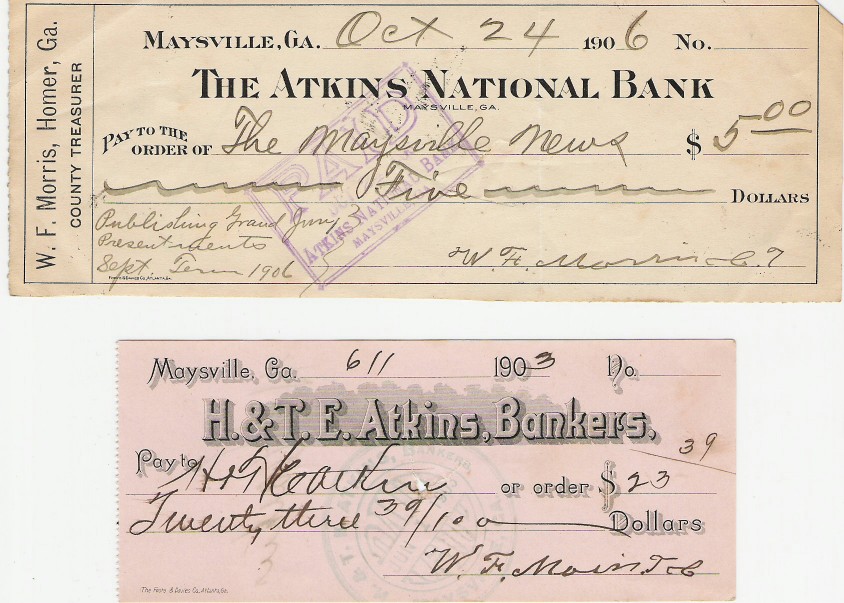 W. F. Morris, Homer, Ga.
COUNTY TREASURER
MAYSVILLE, GA. Oct 24 1906 No.
THE ATKINS NATIONAL BANK
MAYSVILLE, GA.
PAY TO THE
ORDER OF The Maysville News $ 5.00
Five DOLLARS
PAID
ATKINS NATIONAL BANK
MAYSVILLE
Publishing Grand Jury
Presentments
Sept. Term 1906
W. F. Morris C. T
Maysville, Ga. 611 1903 No.
H. & T. E. Atkins, Bankers.
Pay to H & T E Atkins or order $ 23 39
Twenty three 39/100 Dollars
W. F. Morris T. C